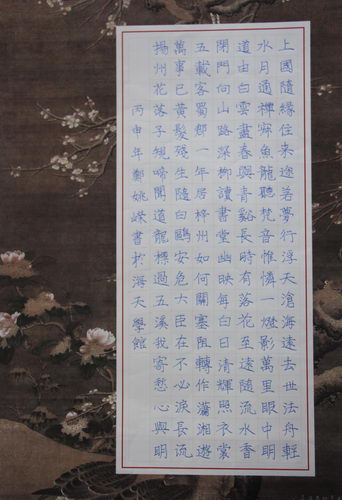 上國隨緣住来途若夢行浮天滄海遠去世法舟輕
水月通禪寂魚龍聽梵音惟憐一燈影萬里眼中明
道由白雲盡春與青谿長時有落花至遠隨流水香
閑門向山路深柳讀書堂幽映每白日清輝照衣裳
五載客蜀郡一年居梓州如何關塞阻轉作瀟湘遊
萬事已黃髮殘生隨白鷗安危大臣在不必淚長流
揚州花落子規啼聞道龍標過五溪我寄愁心與明
丙申年鄭姚嶸書於海天學館